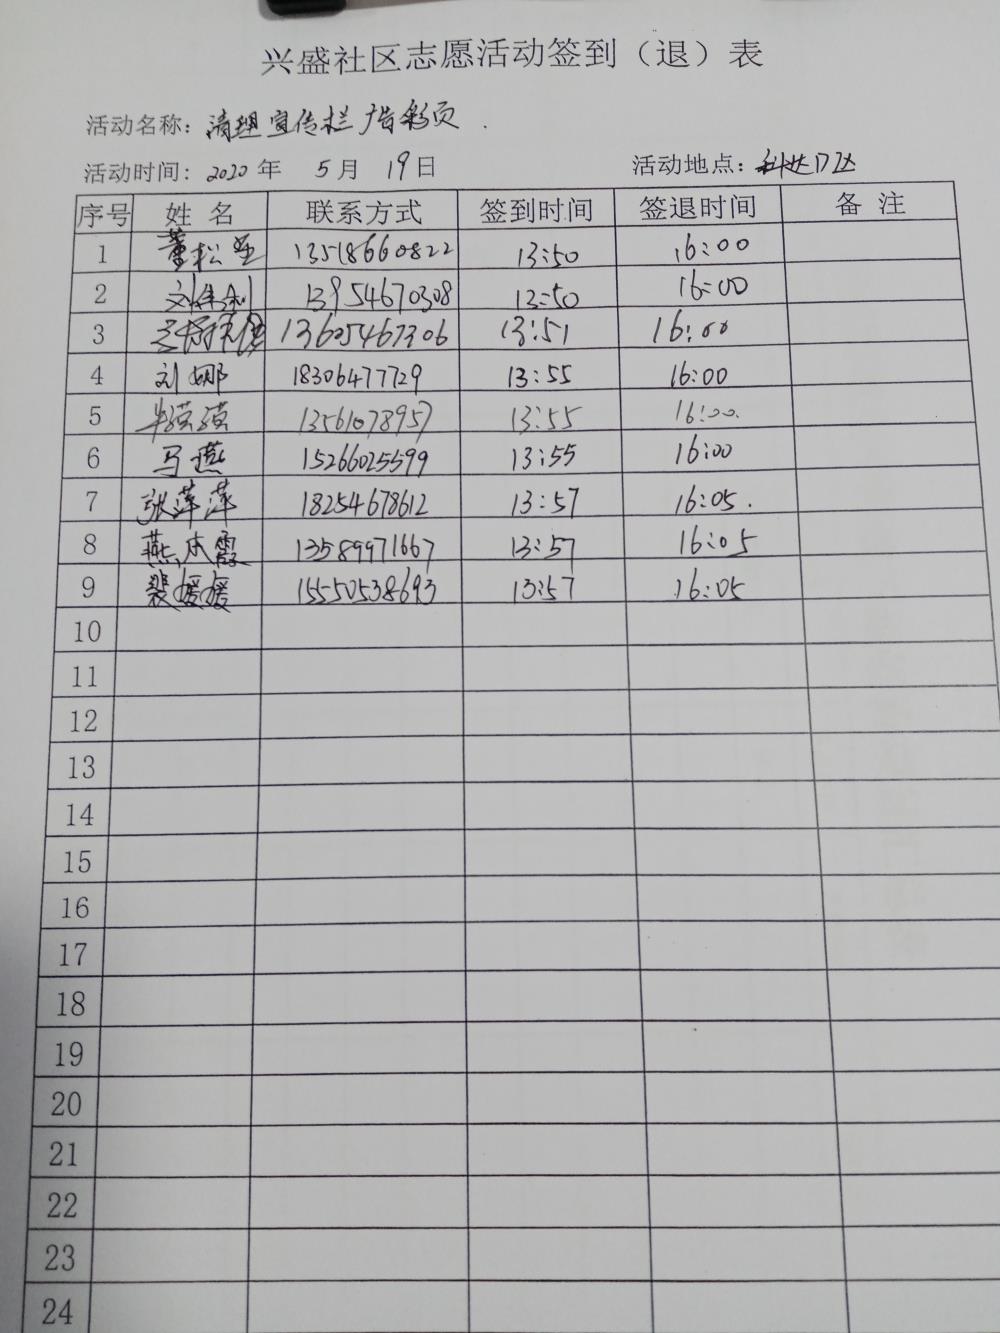 兴盛社区志愿活动签到（退）表
活动名称：清理宣传栏 广告彩页.
活动时间：2020年 5月 19日 活动地点：
序号 姓名 联系方式 签到时间 签退时间 备注
1 董松 13518660822 13:50 16:00
2 刘 13954670308 13:50 16:00
3 13605467306 13:51 16:00
4 刘娜 18306477729 13:55 16:00
5 13561078957 13:55 16:00.
6 马燕 15266025599 13:55 16:00
7 张萍萍 18254678612 13:57 16:05.
8 燕本霞 13589971667 13:57 16:05
9 裴媛媛 15550538693 13:57 16:05
10
11
12
13
14
15
16
17
18
19
20
21
22
23
24